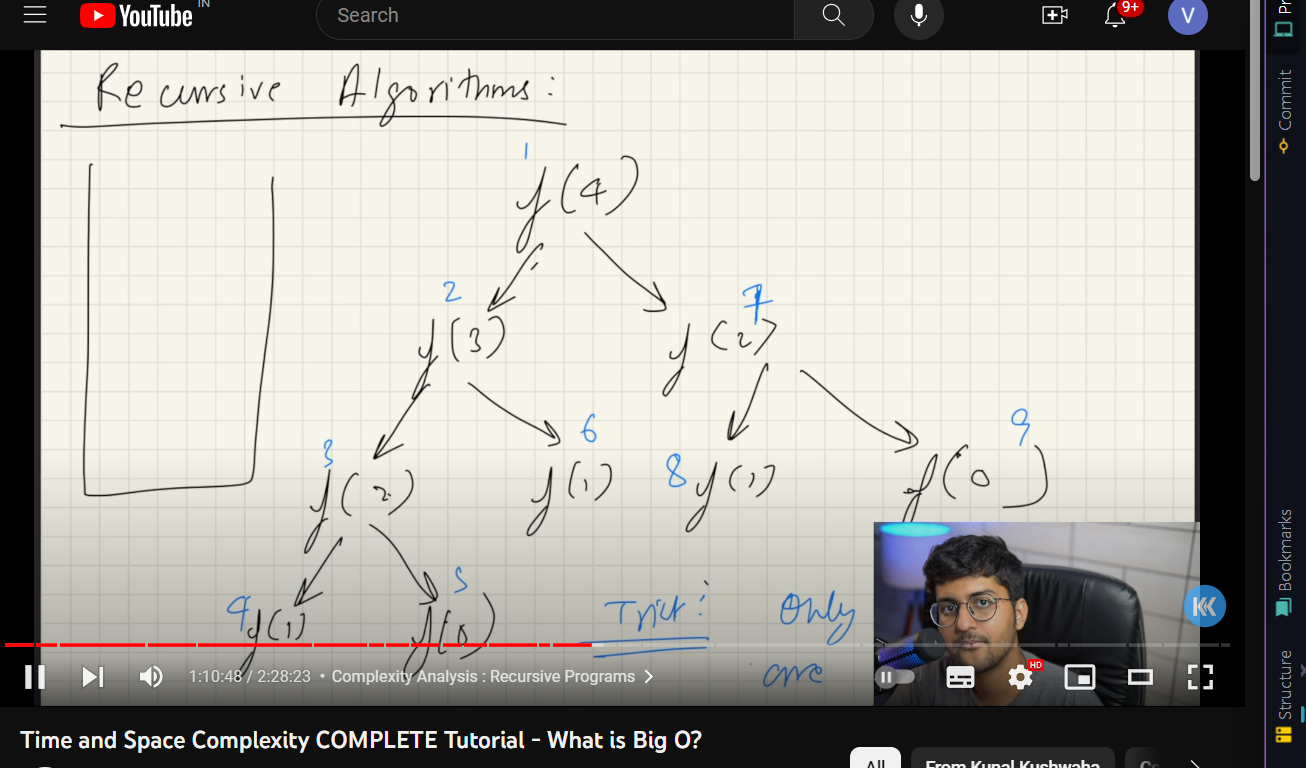 YouTube IN
Search
9+
V
Recursive Algorithms:
1
f(4)
2
7
f(3)
f(2)
3
6
8
9
f(2)
f(1)
f(1)
f(0)
4
5
f(1)
f(0)
Trick:
Only
are
1:10:48 / 2:28:23 • Complexity Analysis : Recursive Programs
HD
Time and Space Complexity COMPLETE Tutorial - What is Big O?
All
From Kunal Kushwaha
Commit
Bookmarks
Structure